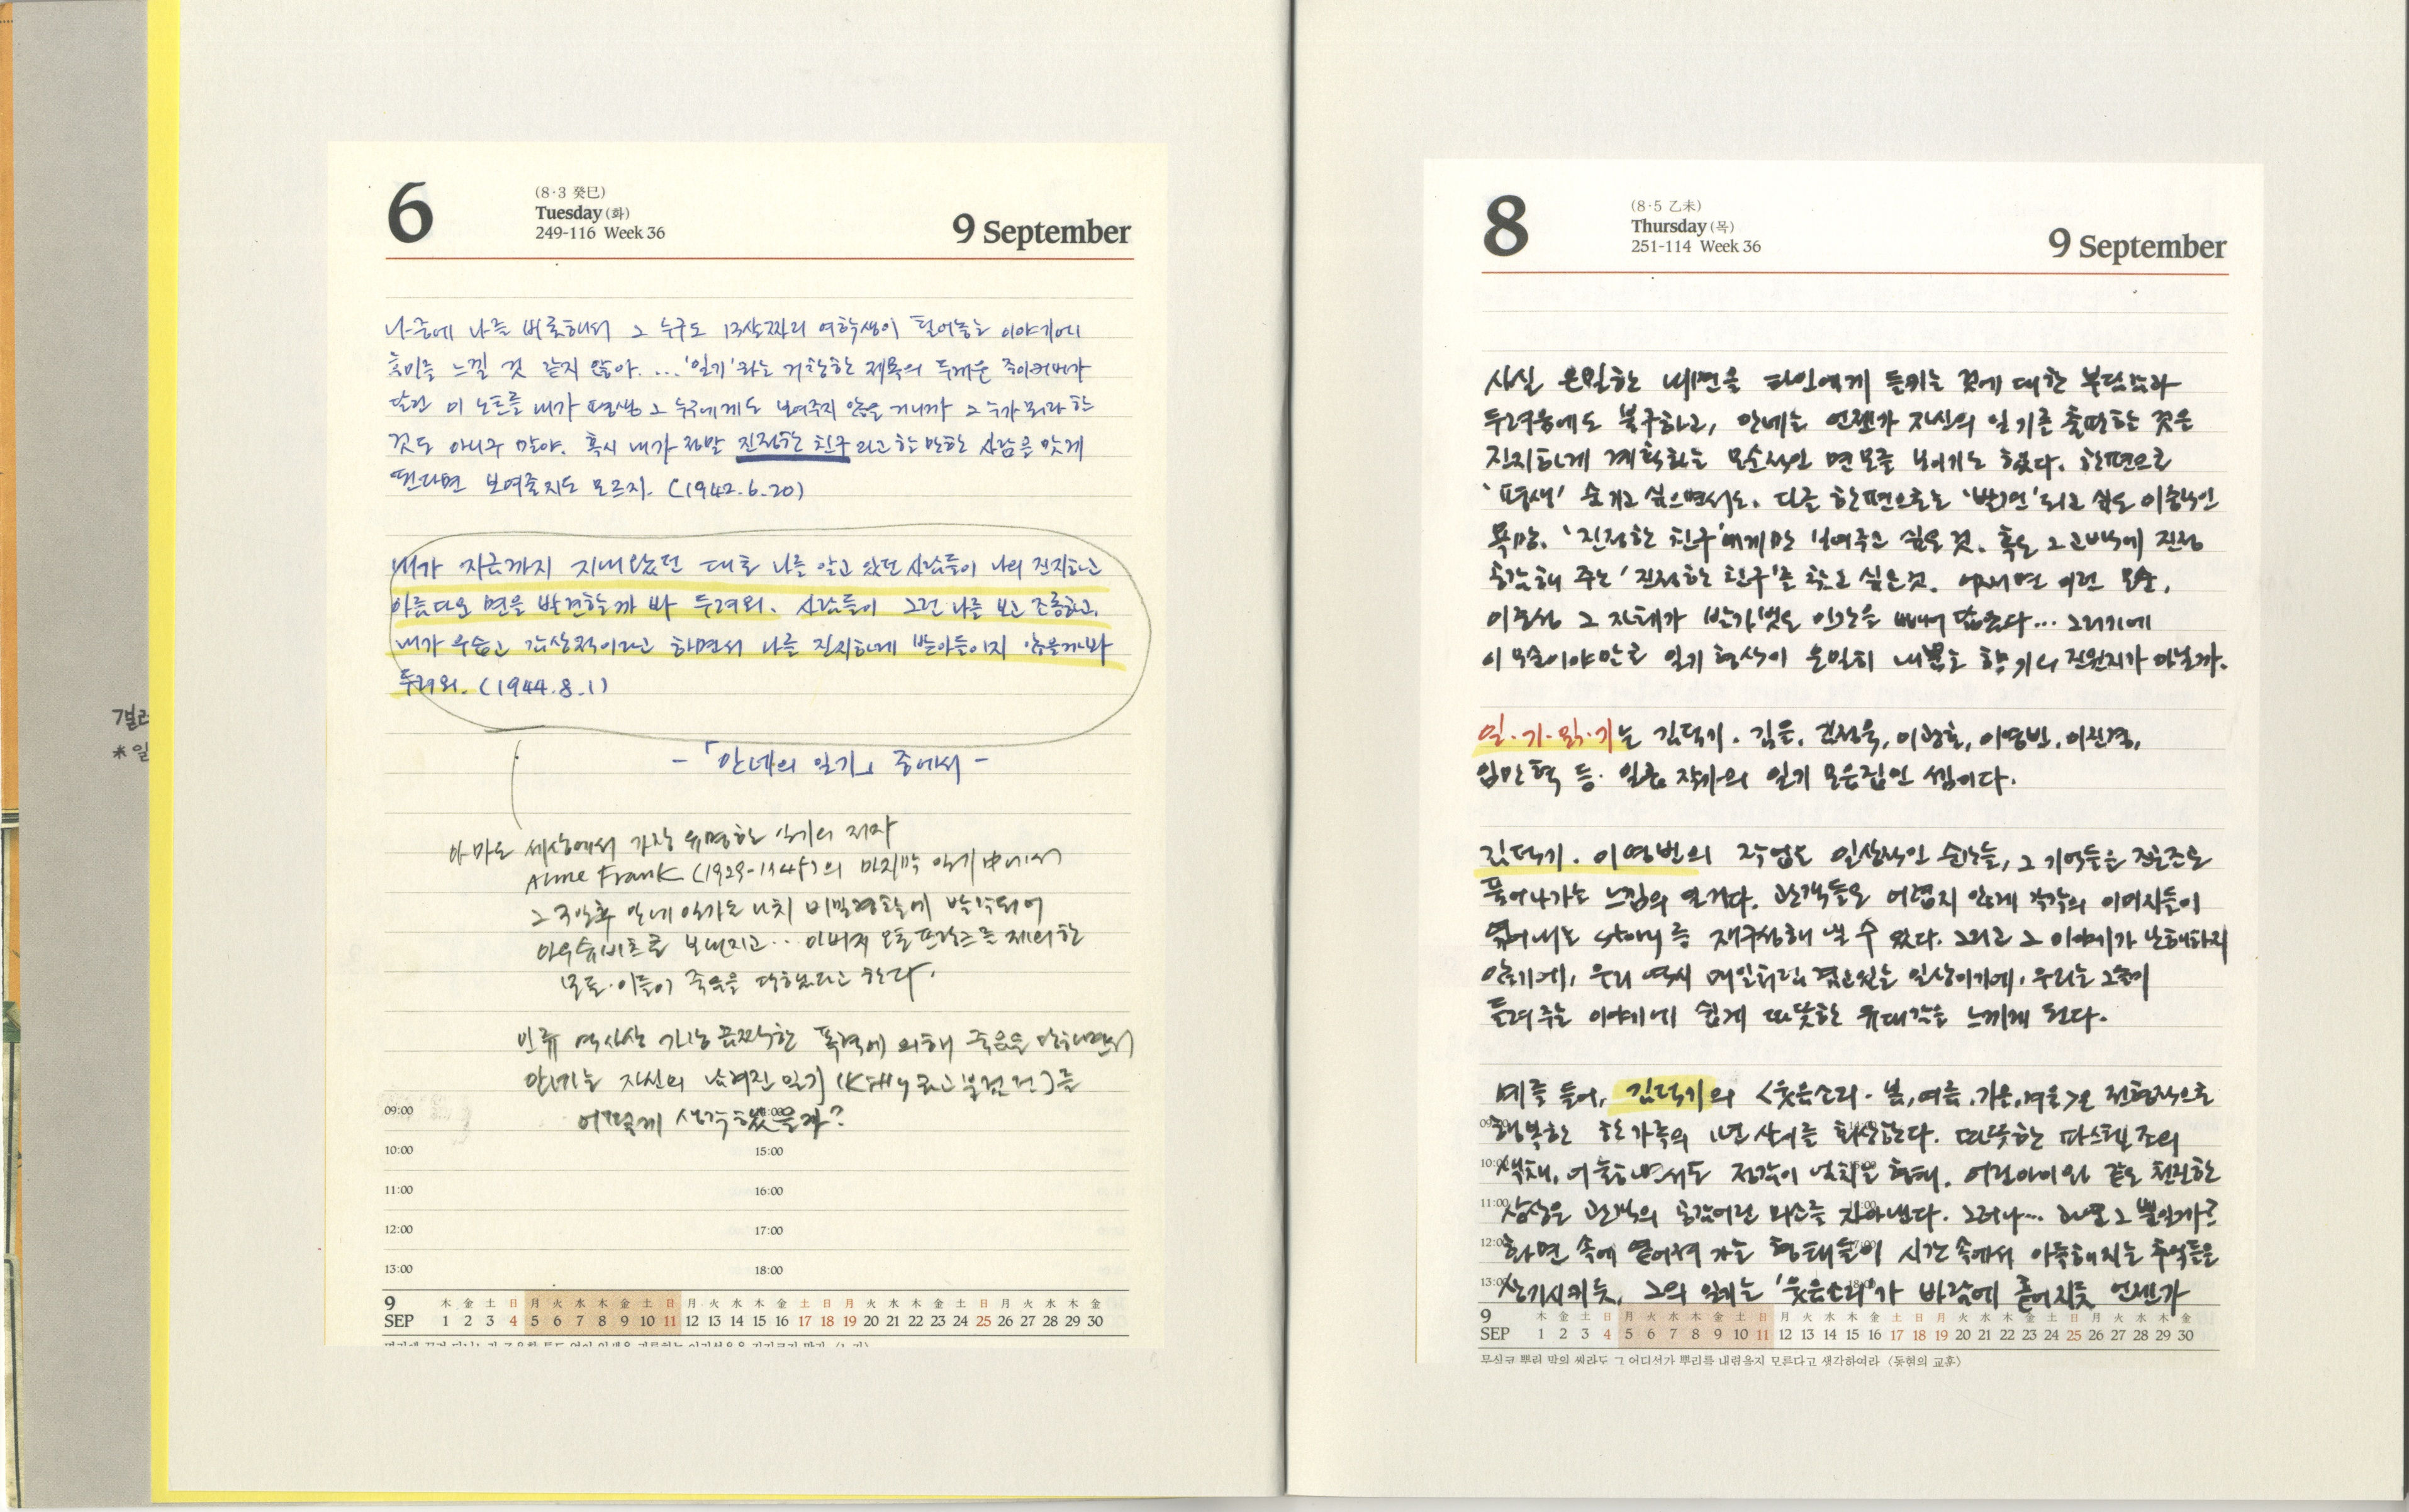 6
(8·3 癸巳)
Tuesday (화)
249-116 Week 36
9 September
나중에 나를 비롯해서 그 누구도 13살짜리 여학생이 털어놓는 이야기에
흥미를 느낄 것 같지 않아. ... '일기'라는 거창한 제목의 두꺼운 종이커버가
달린 이 노트를 내가 평생 그 누구에게도 보여주지 않을 거니까 그 누가 뭐라 한
것도 아니구 말야. 혹시 내가 정말 진정한 친구라고 할 만한 사람을 맞게
된다면 보여줄지도 모르지. (1942.6.20)
내가 지금까지 지내왔던 대로 나를 알고 있던 사람들이 나의 진지하고
아름다운 면을 발견할까 봐 두려워. 사람들이 그런 나를 보고 조롱하고,
내가 우습고 감상적이라고 하면서 나를 진지하게 받아들이지 않을까봐
두려워. (1944.8.1)
-「안네의 일기」 중에서-
아마도 세상에서 가장 유명한 일기의 저자
Anne Frank (1929-1945)의 마지막 일기 中에서
그 3일후 안네 일가는 나치 비밀경찰에 발각되어
아우슈비츠로 보내지고... 아버지 오토 프랑크를 제외한
모든 이들이 죽음을 당했다고 한다.
인류 역사상 가장 끔찍한 폭력에 의해 죽음을 당하면서
안네는 자신의 남겨진 일기 (Kitty라고 불렀던)를
어떻게 생각했을까?
09:00
10:00 15:00
11:00 16:00
12:00 17:00
13:00 18:00
9 木 金 土 日 月 火 水 木 金 土 日 月 火 水 木 金 土 日 月 火 水 木 金 土 日 月 火 水 木 金
SEP 1 2 3 4 5 6 7 8 9 10 11 12 13 14 15 16 17 18 19 20 21 22 23 24 25 26 27 28 29 30
갤러
*일
8
(8·5 乙未)
Thursday (목)
251-114 Week 36
9 September
사실 은밀한 내면을 타인에게 들키는 것에 대한 부담감과
두려움에도 불구하고, 안네는 언젠가 자신의 일기를 출판하는 것을
진지하게 계획하는 모순적인 면모를 보이기도 했다. 한편으로
'평생' 숨기고 싶으면서도, 다른 한편으로는 '발견'되고 싶은 이중적인
욕망. '진정한 친구'에게만 보여주고 싶은 것. 혹은 그 고백에 진정
공감해 주는 '진정한 친구'를 찾고 싶은 것. 어쩌면 이런 모순,
이중성 그 자체가 발가벗은 인간을 빼어 닮았다... 그러기에
이 모순이야말로 일기 형식이 은밀히 내뿜는 향기의 진원지가 아닐까.
일·기·읽·기는 김덕기, 김을, 김정욱, 이광호, 이영빈, 이진경,
임만혁 등 일곱 작가의 일기 모음집인 셈이다.
김덕기, 이영빈의 작업은 일상적인 순간들, 그 기억들을 잔잔조로
풀어나가는 느낌의 일기다. 관객들은 어렵지 않게 각각의 이미지들이
엮어내는 story를 재구성해 낼 수 있다. 그리고 그 이야기가 난해하지
않기에, 우리 역시 매일처럼 겪고있는 일상이기에, 우리는 그들이
들려주는 이야기에 쉽게 따뜻한 유대감을 느끼게 된다.
예를 들어, 김덕기의 <웃음소리 - 봄, 여름, 가을, 겨울>은 전형적으로
행복한 한 가족의 1년 살이를 회상한다. 따뜻한 파스텔 조의
색채, 어눌하면서도 정감이 넘치는 형태, 어린아이와 같은 천진한
상상은 관객의 공감어린 미소를 자아낸다. 그러나... 하나 그 뿐일까?
화면 속에 옅어져 가는 형태들이 시간 속에서 아득해지는 추억들을
상기시키듯, 그의 일기는 '웃음소리'가 바람에 흩어지듯 언젠가
9 木 金 土 日 月 火 水 木 金 土 日 月 火 水 木 金 土 日 月 火 水 木 金 土 日 月 火 水 木 金
SEP 1 2 3 4 5 6 7 8 9 10 11 12 13 14 15 16 17 18 19 20 21 22 23 24 25 26 27 28 29 30
무심코 뿌린 말의 씨라도 그 어디선가 뿌리를 내렸을지 모른다고 생각하여라 〈동현의 교훈〉